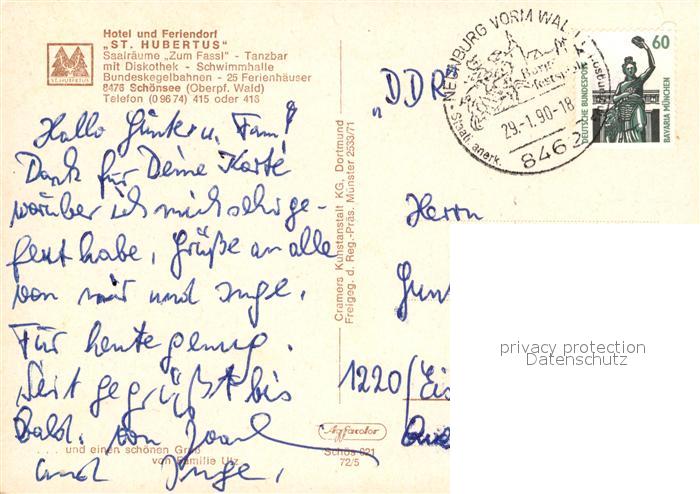 Hotel und Feriendorf
„ST. HUBERTUS"
Saalräume „Zum Fassl" - Tanzbar
mit Diskothek - Schwimmhalle
Bundeskegelbahnen - 25 Ferienhäuser
8476 Schönsee (Oberpf. Wald)
Telefon (0 96 74) 415 oder 416
ST. HUBERTUS
Hallo Günter u. Fam!
Dank für Deine Karte
worüber ich mich sehr ge-
freut habe, Grüße an alle
von mir und Inge.
Für heute genug.
Seit gegrüßt bis
Bald. von
und Inge.
... und einen schönen Gruß
von Familie Utz
Cramers Kunstanstalt KG, Dortmund
Freigeg. d. Reg.-Präs. Münster 2533/71
Agfacolor
Schös 921
72/5
„DDR"
NEUNBURG VORM WALD
Burg-
festspiel
Staatl. anerk.
29.-1.90-18
846
60
DEUTSCHE BUNDESPOST
BAVARIA MÜNCHEN
Herrn
Gün
1220/Eis
privacy protection
Datenschutz